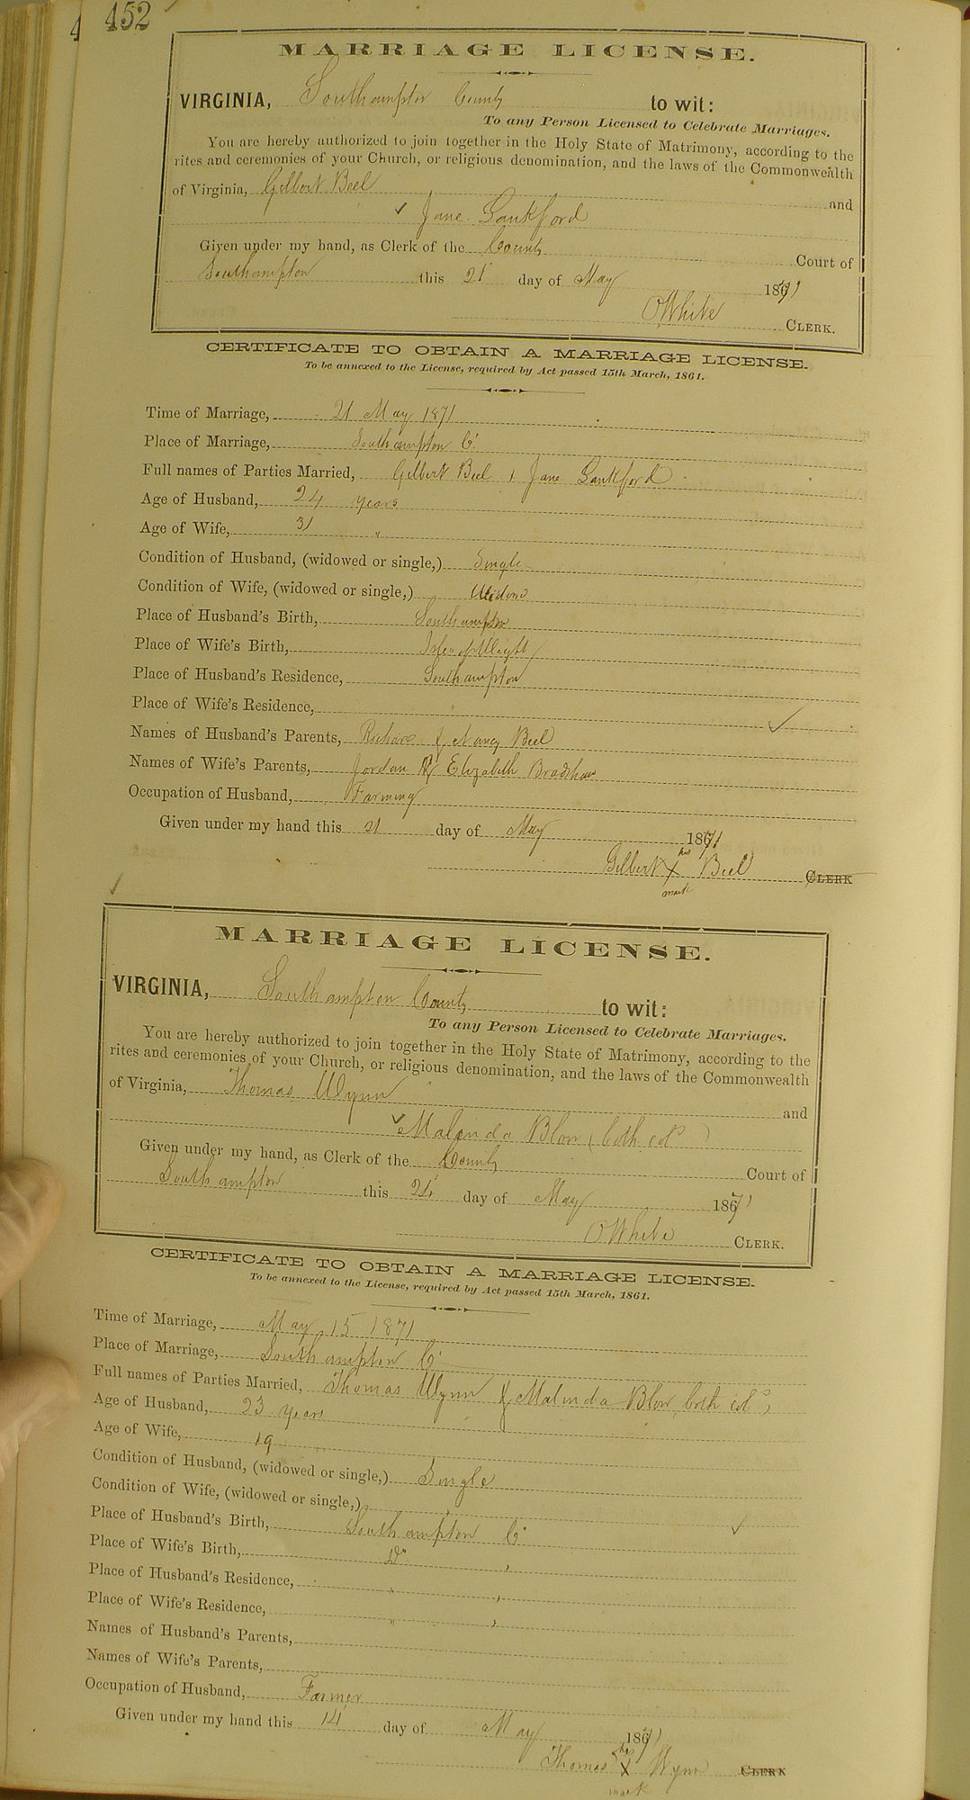 452
MARRIAGE LICENSE.
VIRGINIA, Southampton County to wit:
To any Person Licensed to Celebrate Marriages.
You are hereby authorized to join together in the Holy State of Matrimony, according to the
rites and ceremonies of your Church, or religious denomination, and the laws of the Commonwealth
of Virginia, Gilbert Beel and
Jane Lankford
Given under my hand, as Clerk of the County Court of
Southampton this 21 day of May 1871
O White CLERK.
CERTIFICATE TO OBTAIN A MARRIAGE LICENSE.
To be annexed to the License, required by Act passed 15th March, 1861.
Time of Marriage, 21 May 1871
Place of Marriage, Southampton Co
Full names of Parties Married, Gilbert Beel & Jane Lankford
Age of Husband, 24 years
Age of Wife, 31 "
Condition of Husband, (widowed or single,) Single
Condition of Wife, (widowed or single,) Widow
Place of Husband's Birth, Southampton
Place of Wife's Birth, Isle of Wight
Place of Husband's Residence, Southampton
Place of Wife's Residence, "
Names of Husband's Parents, & Nancy Beel
Names of Wife's Parents, Jordan & Elizabeth Bradshaw
Occupation of Husband, Farming
Given under my hand this 21 day of May 1871
his
Gilbert X Beel CLERK
mark
MARRIAGE LICENSE.
VIRGINIA, Southampton County to wit:
To any Person Licensed to Celebrate Marriages.
You are hereby authorized to join together in the Holy State of Matrimony, according to the
rites and ceremonies of your Church, or religious denomination, and the laws of the Commonwealth
of Virginia, Thomas Wynn and
Malinda Blow (both cold)
Given under my hand, as Clerk of the County Court of
Southampton this day of May 1871
O White CLERK.
CERTIFICATE TO OBTAIN A MARRIAGE LICENSE.
To be annexed to the License, required by Act passed 15th March, 1861.
Time of Marriage, May 15 1871
Place of Marriage, Southampton Co
Full names of Parties Married, Thomas Wynn & Malinda Blow, both cold
Age of Husband, 23 years
Age of Wife, 19 "
Condition of Husband, (widowed or single,) Single
Condition of Wife, (widowed or single,) "
Place of Husband's Birth, Southampton Co
Place of Wife's Birth, Do "
Place of Husband's Residence, " "
Place of Wife's Residence, " "
Names of Husband's Parents,
Names of Wife's Parents,
Occupation of Husband, Farmer
Given under my hand this 14 day of May 1871
his
Thomas X Wynn CLERK
mark